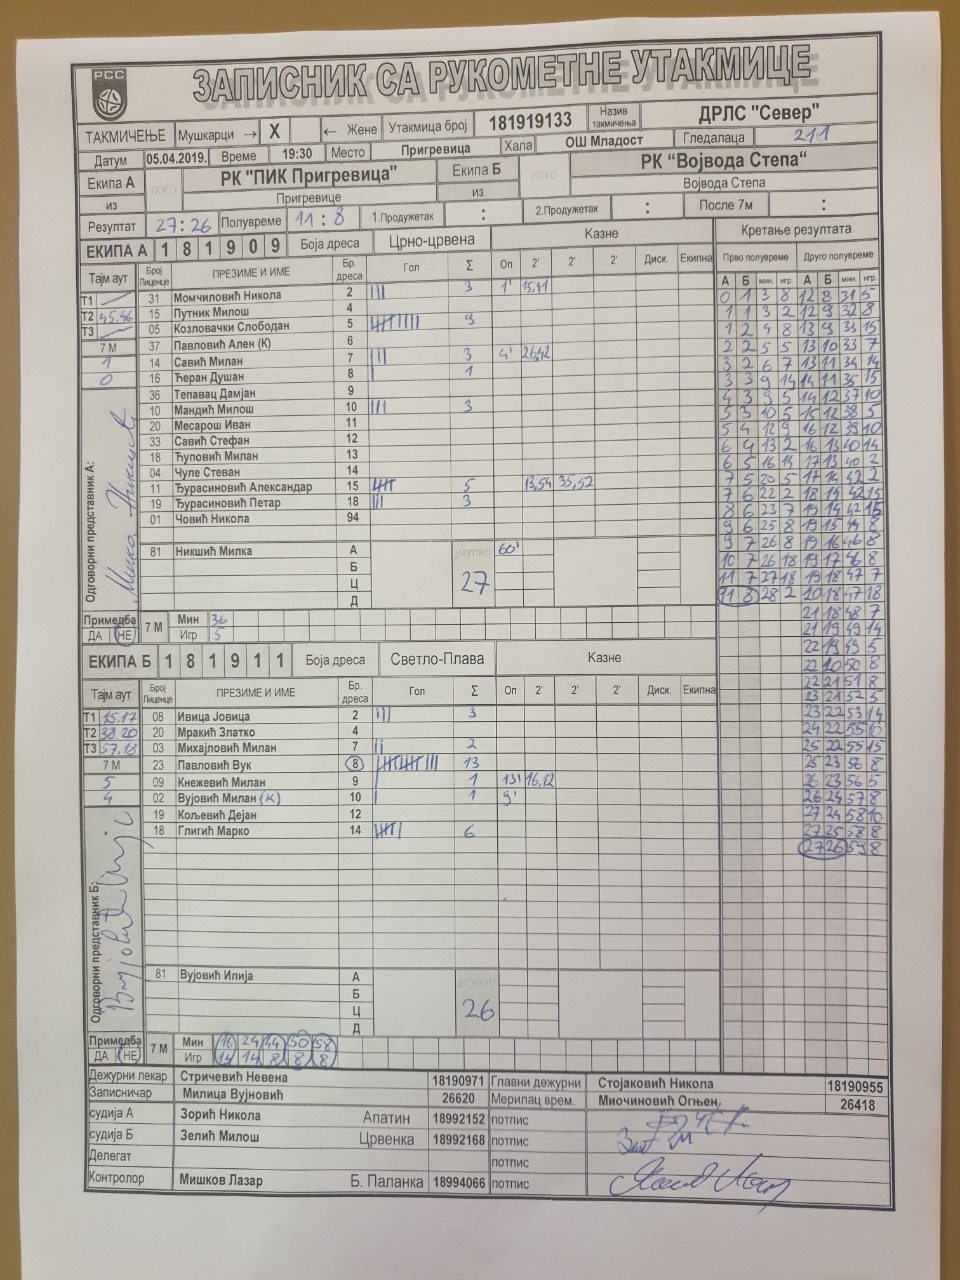 РСС
ЗАПИСНИК СА РУКОМЕТНЕ УТАКМИЦЕ
ТАКМИЧЕЊЕ Мушкарци → X ← Жене Утакмица број 181919133 Назив такмичења ДРЛС "Север"
Датум 05.04.2019. Време 19:30 Место Пригревица Хала ОШ Младост Гледалаца 211
Екипа А лого РК "ПИК Пригревица" Екипа Б лого РК “Војвода Степа“
из Пригревице из Војвода Степа
Резултат 27:26 Полувреме 11:8 1.Продужетак : 2.Продужетак : После 7м :
ЕКИПА А 1 8 1 9 0 9 Боја дреса Црно-црвена Казне Кретање резултата
Тајм аут Број Лиценце ПРЕЗИМЕ И ИМЕ Бр. дреса Гол Σ Оп 2' 2' 2' Диск. Екипна
Прво полувреме Друго полувреме
А Б мин. игр. А Б мин. игр.
Т1 31 Момчиловић Никола 2 III 3 1' 15,41
Т2 45.46 15 Путник Милош 4
Т3 05 Козловачки Слободан 5 9
7 М 37 Павловић Ален (К) 6
1 14 Савић Милан 7 III 3 4' 26,42
0 16 Ћеран Душан 8 I 1
36 Тепавац Дамјан 9
10 Мандић Милош 10 III 3
20 Месарош Иван 11
33 Савић Стефан 12
18 Ћуповић Милан 13
04 Чуле Стеван 14
11 Ђурасиновић Александар 15 5 13,54 35,52
19 Ђурасиновић Петар 18 III 3
01 Човић Никола 94
Одговорни представник А:
81 Никшић Милка А укупно 60'
Б
Ц 27
Д
Примедба ДА НЕ 7 М Мин 36
Игр 5
0 1 3 8 12 8 31 5
1 1 3 2 12 9 32 8
1 2 4 8 13 9 33 15
2 2 5 5 13 10 33 7
3 2 6 7 13 11 34 14
3 3 9 14 14 11 35 15
4 3 9 5 14 12 37 10
5 3 10 5 15 12 38 5
5 4 12 9 16 12 39 10
6 4 13 2 16 13 40 14
6 5 16 14 17 13 40 2
7 5 20 5 17 14 42 2
7 6 22 2 18 14 42 15
8 6 23 7 19 14 42 15
9 6 25 8 19 15 44 8
9 7 26 8 19 16 46 8
10 7 26 18 19 17 46 8
11 7 27 18 19 18 47 7
11 8 28 2 20 18 47 18
21 18 48 7
21 19 49 14
22 19 49 5
22 20 50 8
22 21 51 8
23 21 52 5
23 22 53 14
24 22 55 10
25 22 55 15
25 23 56 8
26 23 56 5
26 24 57 8
27 24 58 10
27 25 58 8
27 26 59 8
ЕКИПА Б 1 8 1 9 1 1 Боја дреса Светло-Плава Казне
Тајм аут Број Лиценце ПРЕЗИМЕ И ИМЕ Бр. дреса Гол Σ Оп 2' 2' 2' Диск. Екипна
Т1 15.17 08 Ивица Јовица 2 III 3
Т2 38.20 20 Мракић Златко 4
Т3 57.18 03 Михајловић Милан 7 II 2
7 М 23 Павловић Вук 8 13
5 09 Кнежевић Милан 9 I 1 13' 16,12
4 02 Вујовић Милан (К) 10 I 1 9'
19 Кољевић Дејан 12
18 Глигић Марко 14 6
Одговорни представник Б:
81 Вујовић Илија А укупно
Б
Ц 26
Д
Примедба ДА НЕ 7 М Мин 16 24 44 50 58
Игр 14 14 8 8 8
Дежурни лекар Стричевић Невена 18190971 Главни дежурни Стојаковић Никола 18190955
Записничар Милица Вујновић 26620 Мерилац врем. Миочиновић Огњен, 26418
судија А Зорић Никола Апатин 18992152 потпис
судија Б Зелић Милош Црвенка 18992168 потпис
Делегат потпис
Контролор Мишков Лазар Б. Паланка 18994066 потпис